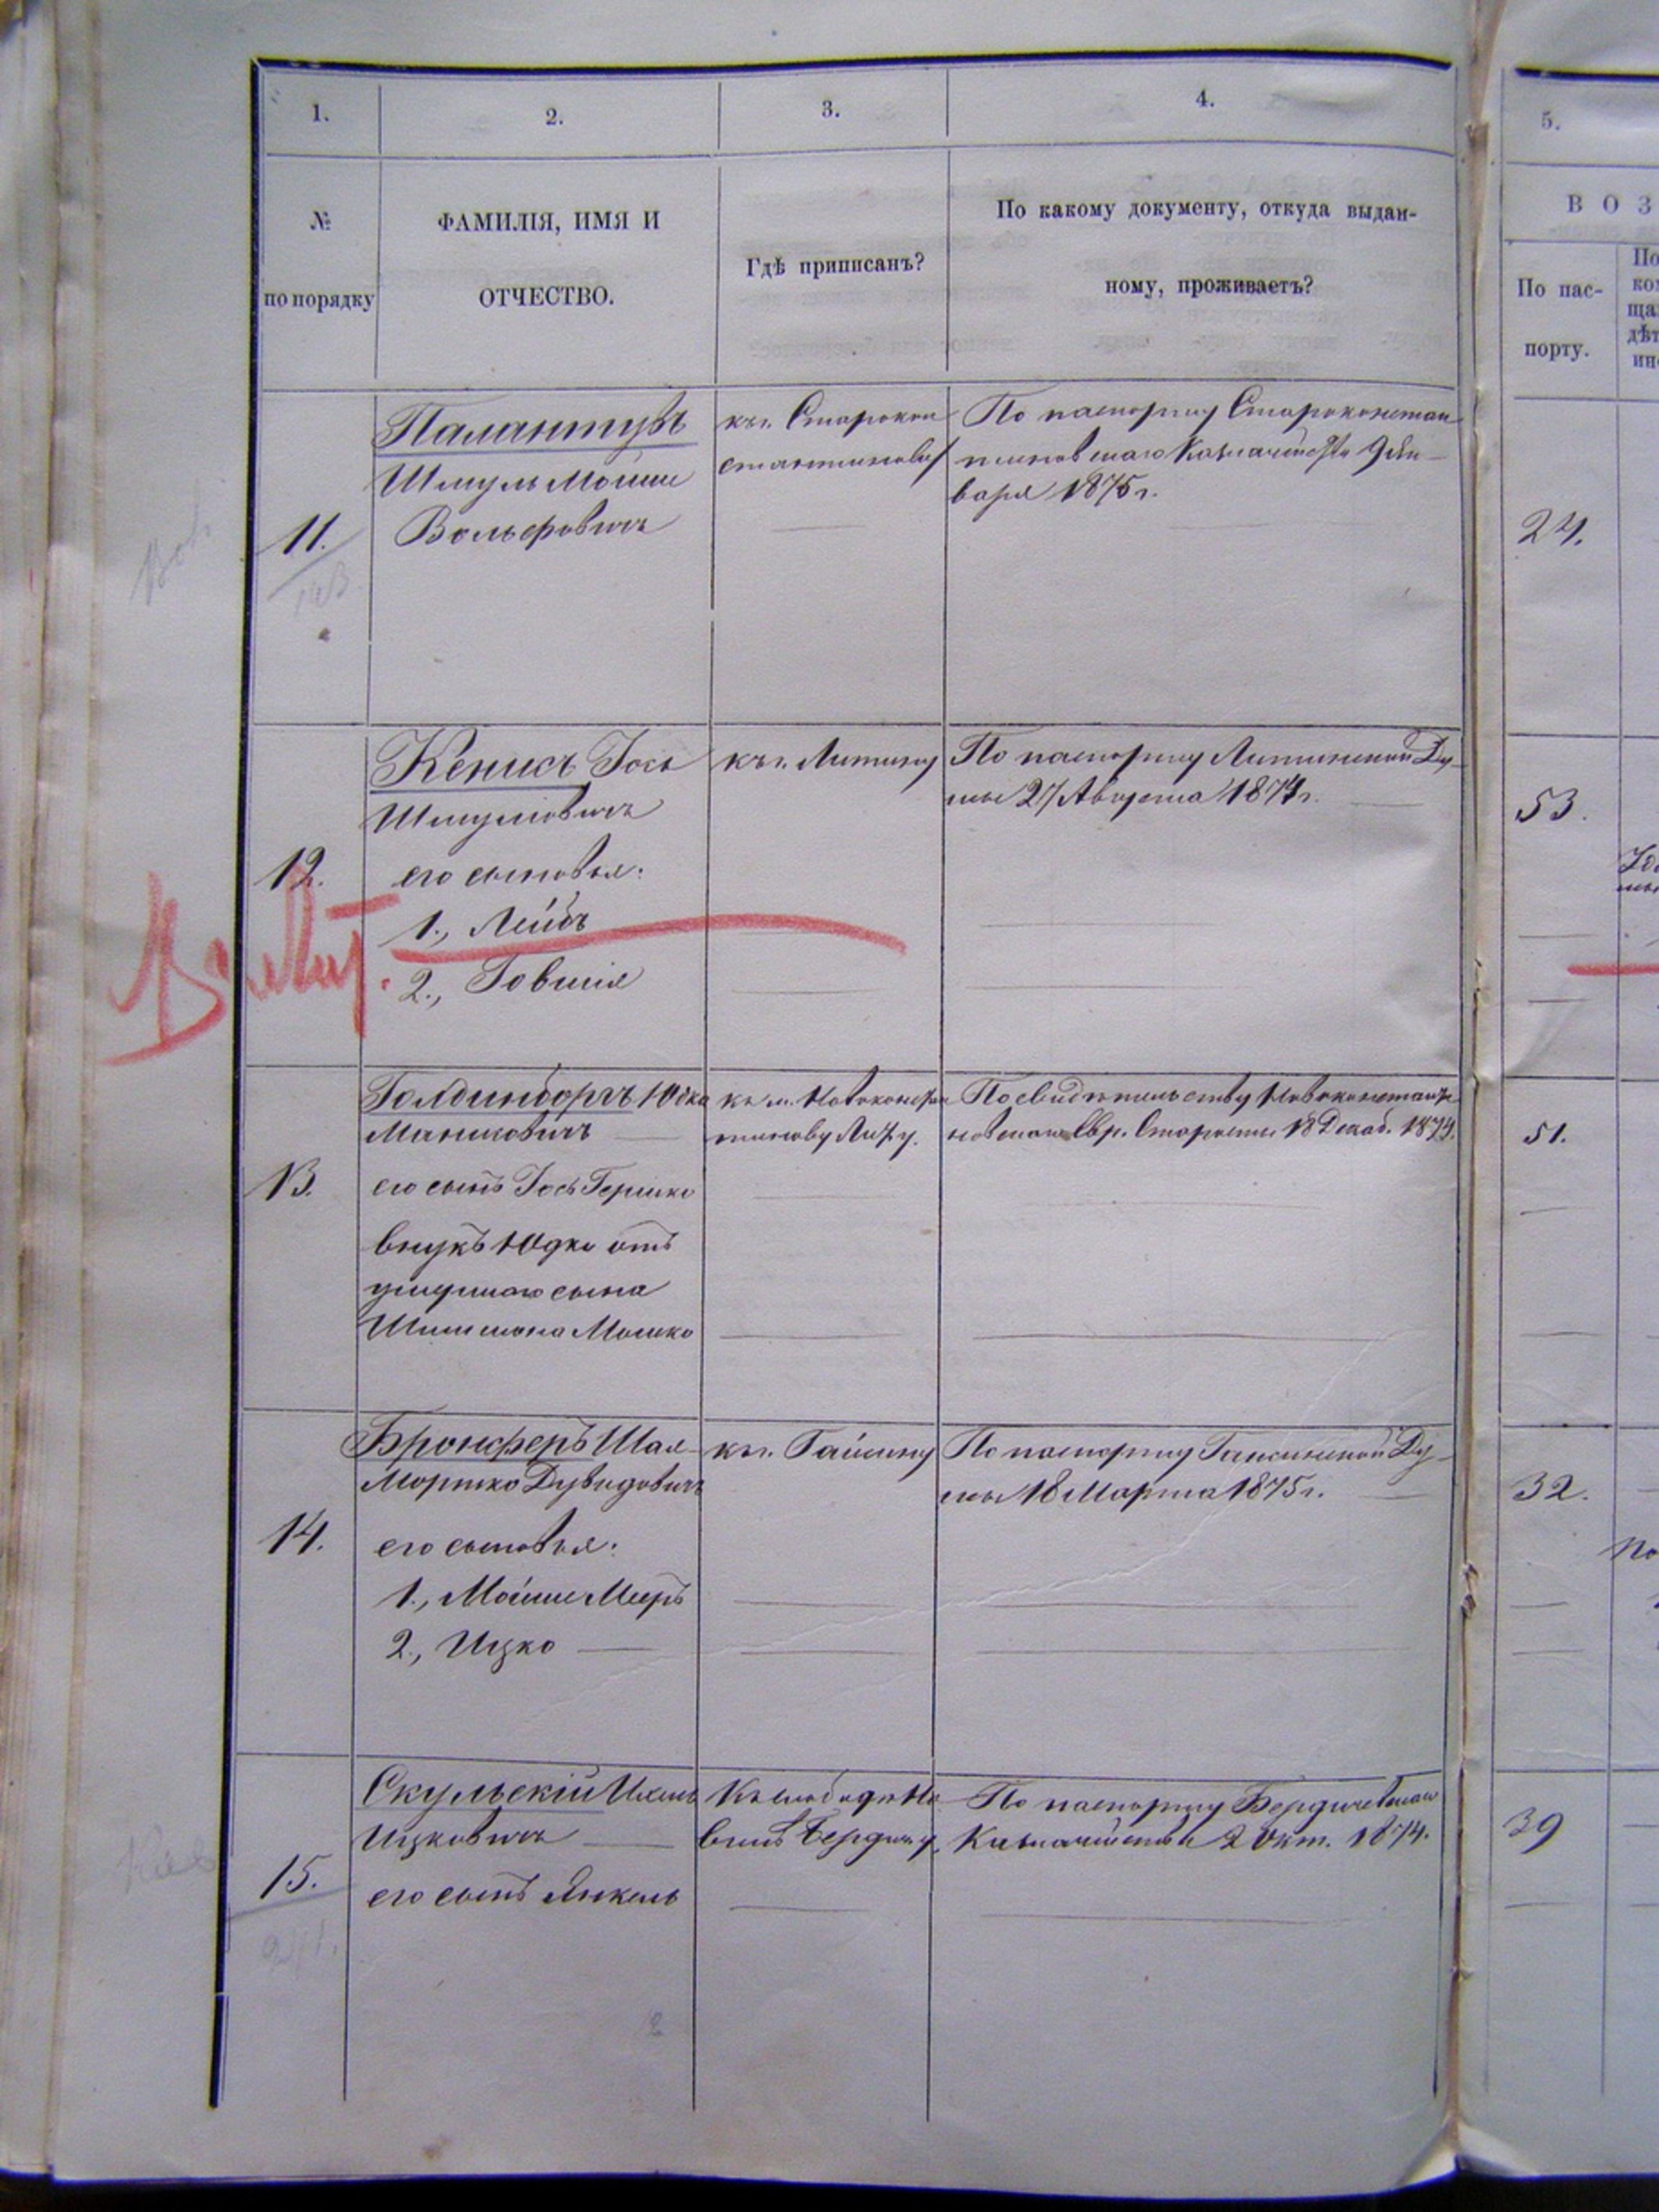 1.
2.
3.
4.
5.
№
по порядку
ФАМИЛІЯ, ИМЯ И
ОТЧЕСТВО.
Гдѣ приписанъ?
По какому документу, откуда выдан-
ному, проживаетъ?
В О З
По пас-
порту.
11.
Палантувъ
Шмуль Мойше
Вольфовичъ
къ г. Старокон
стантинову
По паспорту Староконстан
тиновскаго Казначейства 9 Ян-
варя 1875 г.
24.
12.
Кенисъ Іось
Шмулювичъ
его сыновья:
1., Лейбъ
2., Товшія
къ г. Литину
По паспорту Литинской Ду-
мы 27 Августа 1874 г.
53.
13.
Голдинборгъ Юдка
Маниковичъ
его сынъ Іось Гершко
внукъ Юдко отъ
умершаго сына
Шимшона Мошко
къ м. Новоконстан
тинову Лит. у.
По свидѣтельству Новоконстанти
новскаго Евр. Старосты 18 Декаб. 1874.
51.
14.
Бронферъ Шая-
Мортко Дувидовичъ
его сыновья:
1., Мойше Мееръ
2., Ицко
къ г. Гайсину
По паспорту Гайсинской Ду-
мы 18 Марта 1875 г.
32.
15.
Скульскій Ихель
Ицковичъ
его сынъ Янкель
По паспорту Бердичевскаго
Казначейства 2 Окт. 1874.
39